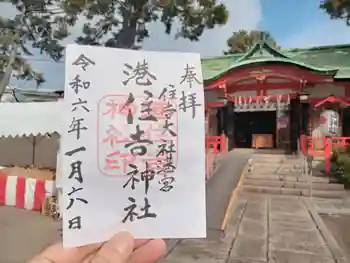 奉拝
住吉大社若宮
港住吉神社
令和六年一月六日